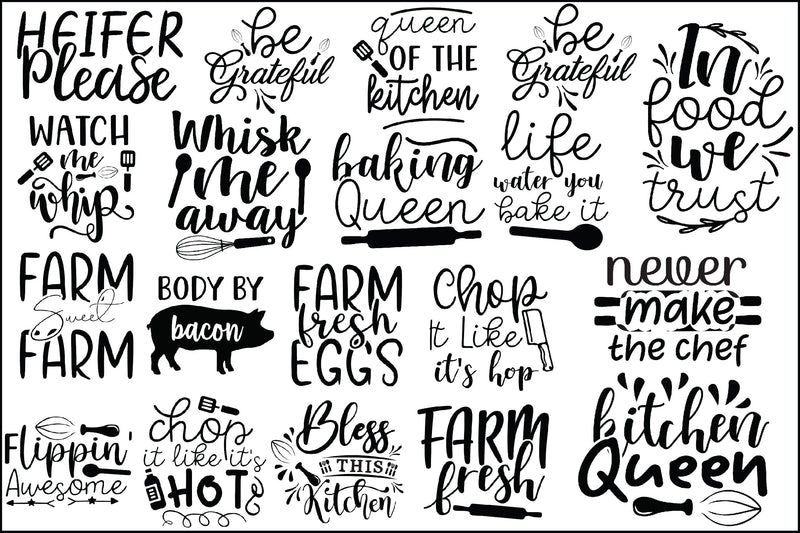 HEIFER
Please
be
Grateful
queen
OF THE
kitchen
be
Grateful
In
food
we
trust
WATCH
me
whip
Whisk
me
away
baking
Queen
life
water you
bake it
FARM
Sweet
FARM
BODY BY
bacon
FARM
fresh
EGGS
Chop
It Like
it's hop
never
make
the chef
Flippin'
Awesome
chop
it like it's
HOT
Bless
THIS
Kitchen
FARM
fresh
kitchen
Queen